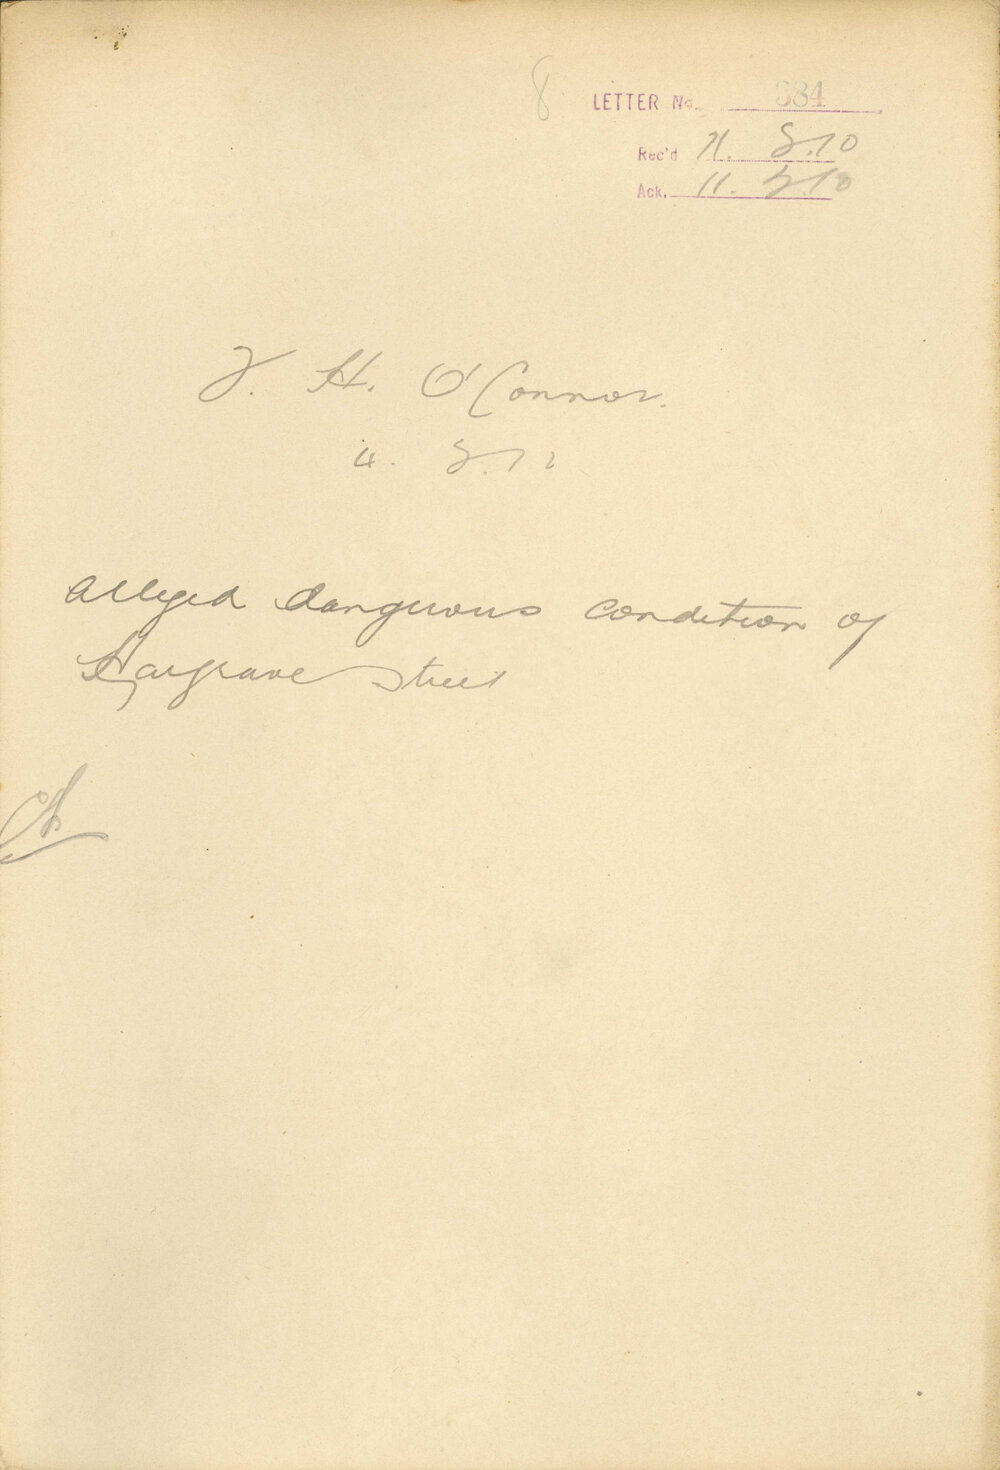 8
LETTER No. 834
Rec'd 11. 3.10
Ack. 11. 3.10
J. H. O'Connor.
4. 3.10
alleged dangerous condition of
Hargrave Street